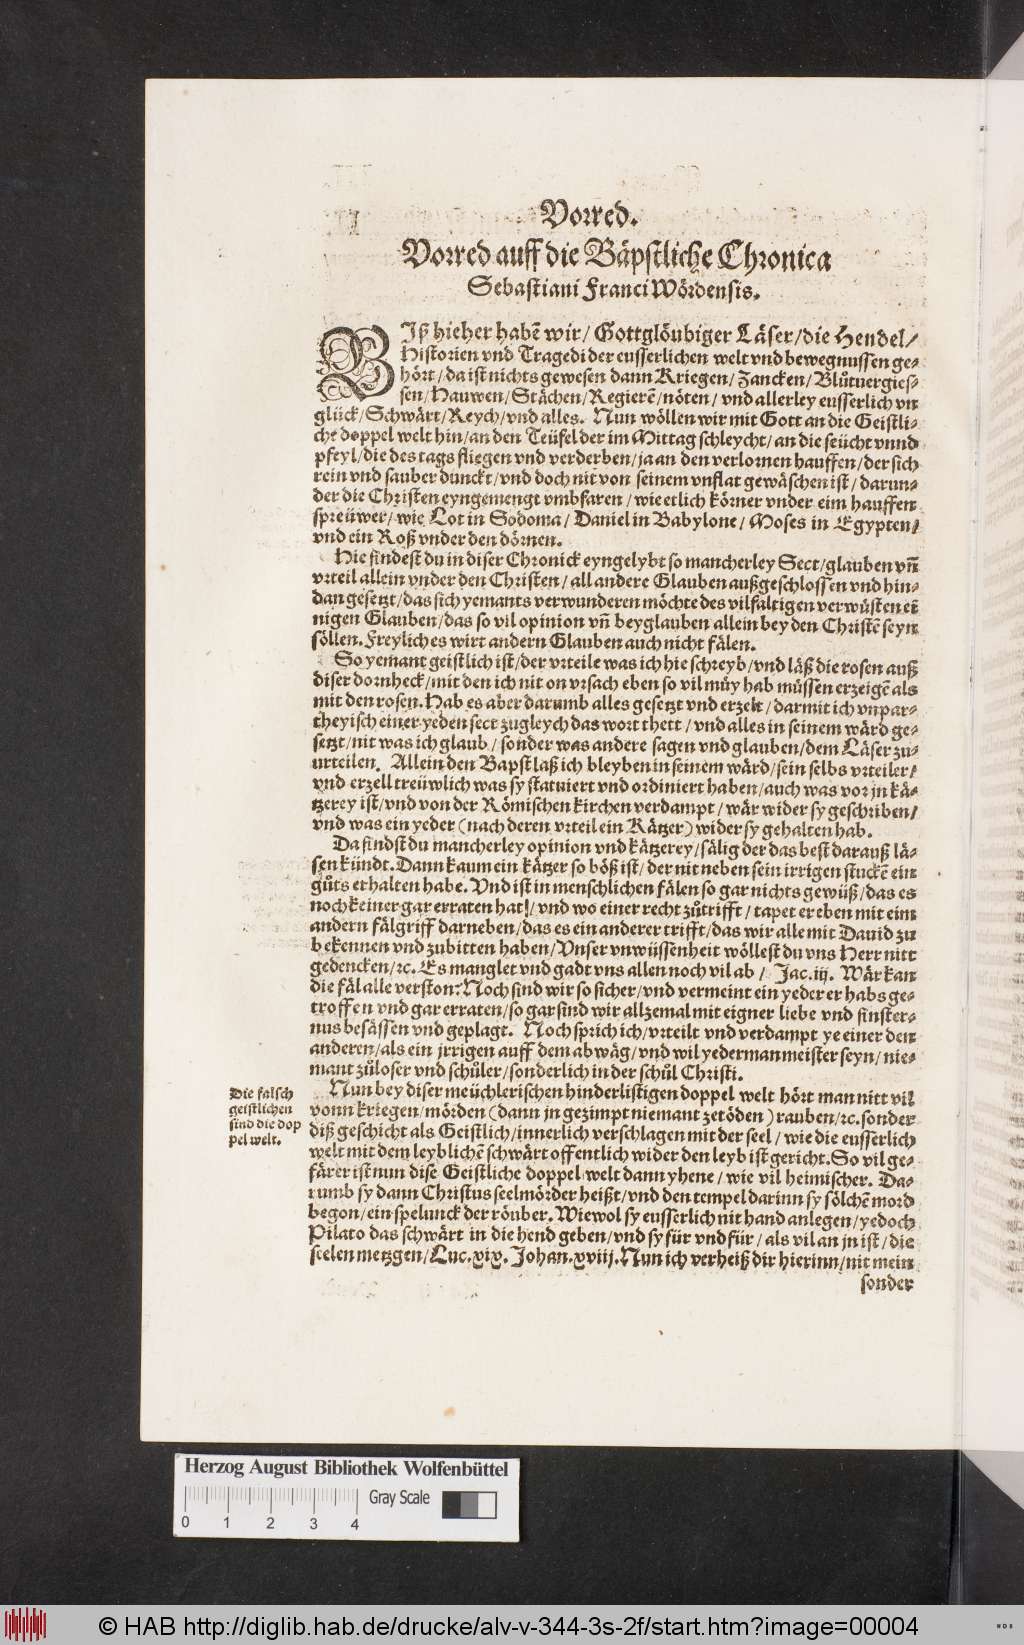 Vorred.
Vorred auff die Bäpstliche Chronica
Sebastiani Franci Wördensis.
BIß hieher habē wir / Gottglöubiger Läser / die Hendel /
Historien vnd Tragedi der eusserlichen welt vnd bewegnussen ge-
hört / da ist nichts gewesen dann Kriegen / Zancken / Blůtuergies-
sen / Hauwen / Stächen / Regierē / nöten / vnd allerley eusserlich vn
glück / Schwärt / Reych / vnd alles. Nun wöllen wir mit Gott an die Geistli-
che doppel welt hin / an den Teüfel der im Mittag schleycht / an die seücht vnnd
pfeyl / die des tags fliegen vnd verderben / ja an den verlornen hauffen / der sich
rein vnd sauber dunckt / vnd doch nit von seinem vnflat gewäschen ist / darun-
der die Christen eyngemengt vmbfaren / wie etlich körner vnder eim hauffen
spreüwer / wie Lot in Sodoma / Daniel in Babylone / Moses in Egypten /
vnd ein Roß vnder den dörnen.
Hie findest du in diser Chronick eyngelybt so mancherley Sect / glauben vñ
vrteil allein vnder den Christen / all andere Glauben außgeschlossen vnd hin-
dan gesetzt / das sich yemants verwunderen möchte des vilfaltigen verwüsten ei
nigen Glauben / das so vil opinion vñ beyglauben allein bey den Christē seyn
söllen. Freylich es wirt andern Glauben auch nicht fälen.
So yemant geistlich ist / der vrteile was ich hie schreyb / vnd läß die rosen auß
diser dornheck / mit den ich nit on vrsach eben so vil můy hab müssen erzeigē als
mit den rosen. Hab es aber darumb alles gesetzt vnd erzelt / darmit ich vnpar-
theyisch einer yeden sect zugleych das wort thett / vnd alles in seinem wärd ge-
setzt / nit was ich glaub / sonder was andere sagen vnd glauben / dem Läser zu-
urteilen. Allein den Bapst laß ich bleyben in seinem wärd / sein selbs vrteiler /
vnd erzell treüwlich was sy statuiert vnd ordiniert haben / auch was vor jn kä-
tzerey ist / vnd von der Römischen kirchen verdampt / wär wider sy geschriben /
vnd was ein yeder (nach deren vrteil ein Kätzer) wider sy gehalten hab.
Da findst du mancherley opinion vnd kätzerey / sälig der das best darauß lä-
sen kündt. Dann kaum ein kätzer so böß ist / der nit neben sein irrigen stuckē ein
gůts erhalten habe. Vnd ist in menschlichen fälen so gar nichts gewüß / das es
noch keiner gar erraten hat / vnd wo einer recht zůtrifft / tapet er eben mit eim
andern fälgriff darneben / das es ein anderer trifft / das wir alle mit Dauid zu
bekennen vnd zubitten haben / Vnser vnwüssenheit wöllest du vns Herr nitt
gedencken / ꝛc. Es manglet vnd gadt vns allen noch vil ab / Jac. iij. Wär kan
die fäl alle verston: Noch sind wir so sicher / vnd vermeint ein yeder er habs ge-
troffen vnd gar erraten / so gar sind wir allzemal mit eigner liebe vnd finster-
nus besässen vnd geplagt. Noch sprich ich / vrteilt vnd verdampt ye einer den
anderen / als ein jrrigen auff dem abwäg / vnd wil yederman meister seyn / nie-
mant zůloser vnd schůler / sonderlich in der schůl Christi.
Nun bey diser meüchlerischen hinderlistigen doppel welt hört man nitt vil
vonn kriegen / mörden (dann jn gezimpt niemant zetöden) rauben / ꝛc. sonder
diß geschicht als Geistlich / innerlich verschlagen mit der seel / wie die eusserlich
welt mit dem leyblichē schwärt offentlich wider den leyb ist gericht. So vil ge-
färer ist nun dise Geistliche doppel welt dann yhene / wie vil heimischer. Da-
rumb sy dann Christus seelmörder heißt / vnd den tempel darinn sy sölchē mord
begon / ein spelunck der röuber. Wiewol sy eusserlich nit hand anlegen / yedoch
Pilato das schwärt in die hend geben / vnd sy für vnd für / als vil an jn ist / die
seelen metzgen / Luc. xix. Johan. xviij. Nun ich verheiß dir hierinn / nit mein
sonder
Die falsch
geistlichen
sind die dop
pel welt.
Herzog August Bibliothek Wolfenbüttel
Gray Scale
0 1 2 3 4
© HAB http://diglib.hab.de/drucke/alv-v-344-3s-2f/start.htm?image=00004